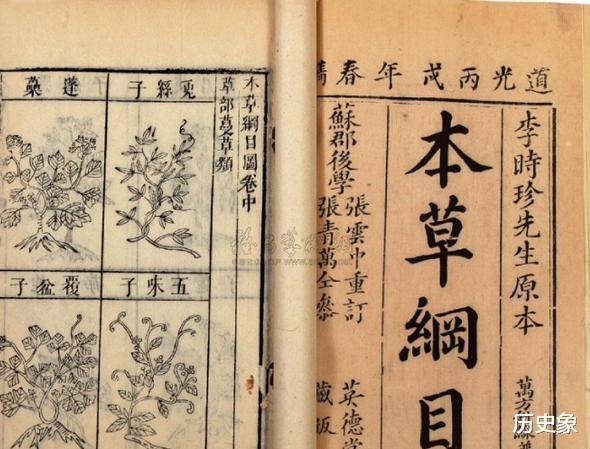 道光丙戌年春鐫
李時珍先生原本
萬方
本草綱目
蘇郡後學
張雲中重訂
張青萬仝參
英德堂
藏版
本草綱目圖卷中
草部蔓草類
兎絲子
蓬蘽
五味子
覆盆子
历史象